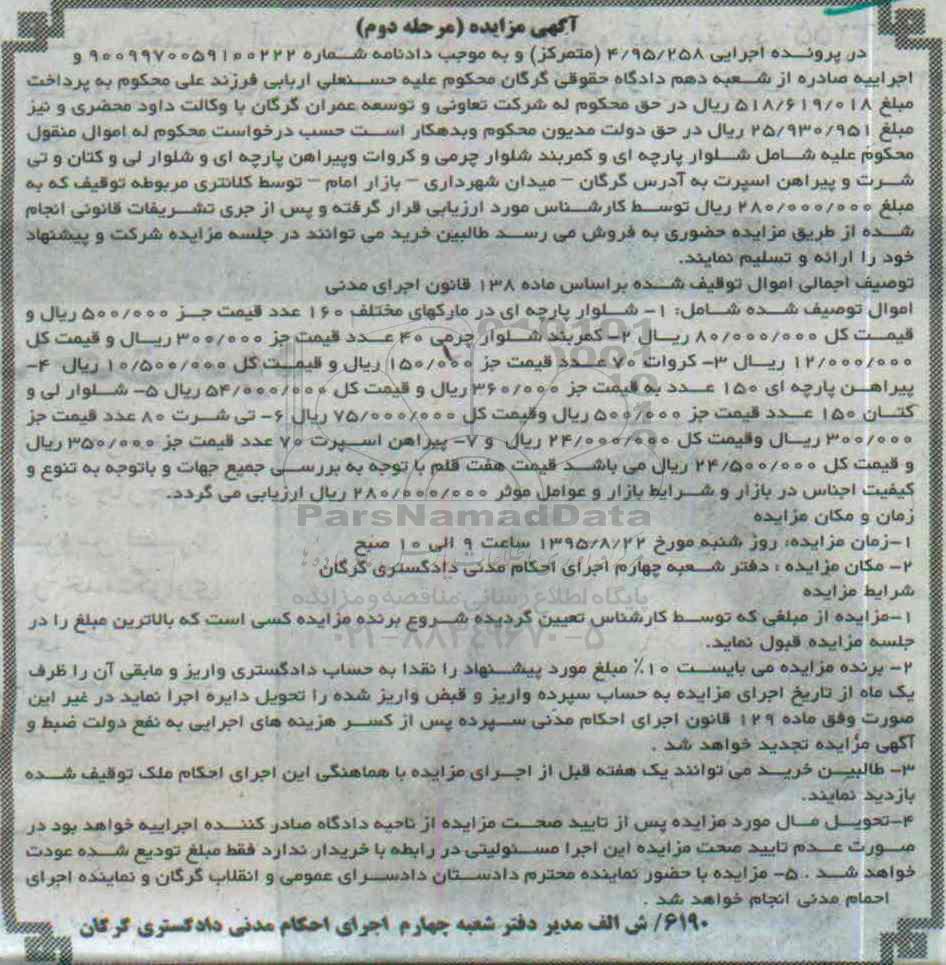 آگهی مزایده (مرحله دوم)
در پرونده اجرایی ۴/۹۵/۲۵۸ (متمرکز) و به موجب دادنامه شماره ۹۰۰۹۹۷۰۰۵۹۱۰۰۲۲۲ و
اجراییه صادره از شعبه دهم دادگاه حقوقی گرگان محکوم علیه حسنعلی اربابی فرزند علی محکوم به پرداخت
مبلغ ۵۱۸/۶۱۹/۰۱۸ ریال در حق محکوم له شرکت تعاونی و توسعه عمران گرگان با وکالت داود محضری و نیز
مبلغ ۲۵/۹۳۰/۹۵۱ ریال در حق دولت مدیون محکوم وبدهکار است حسب درخواست محکوم له اموال منقول
محکوم علیه شامل شلوار پارچه ای و کمربند شلوار چرمی و کروات وپیراهن پارچه ای و شلوار لی و کتان و تی
شرت و پیراهن اسپرت به آدرس گرگان – میدان شهرداری – بازار امام – توسط کلانتری مربوطه توقیف که به
مبلغ ۲۸۰/۰۰۰/۰۰۰ ریال توسط کارشناس مورد ارزیابی قرار گرفته و پس از جری تشریفات قانونی انجام
شده از طریق مزایده حضوری به فروش می رسد طالبین خرید می توانند در جلسه مزایده شرکت و پیشنهاد
خود را ارائه و تسلیم نمایند.
توصیف اجمالی اموال توقیف شده براساس ماده ۱۳۸ قانون اجرای مدنی
اموال توصیف شده شامل: ۱- شلوار پارچه ای در مارکهای مختلف ۱۶۰ عدد قیمت جز ۵۰۰/۰۰۰ ریال و
قیمت کل ۸۰/۰۰۰/۰۰۰ ریال ۲- کمربند شلوار چرمی ۴۰ عدد قیمت جز ۳۰۰/۰۰۰ ریال و قیمت کل
۱۲/۰۰۰/۰۰۰ ریال ۳- کروات ۷۰ عدد قیمت جز ۱۵۰/۰۰۰ ریال و قیمت کل ۱۰/۵۰۰/۰۰۰ ریال ۴-
پیراهن پارچه ای ۱۵۰ عدد به قیمت جز ۳۶۰/۰۰۰ ریال و قیمت کل ۵۴/۰۰۰/۰۰۰ ریال ۵- شلوار لی و
کتان ۱۵۰ عدد قیمت جز ۵۰۰/۰۰۰ ریال وقیمت کل ۷۵/۰۰۰/۰۰۰ ریال ۶- تی شرت ۸۰ عدد قیمت جز
۳۰۰/۰۰۰ ریال وقیمت کل ۲۴/۰۰۰/۰۰۰ ریال و ۷- پیراهن اسپرت ۷۰ عدد قیمت جز ۳۵۰/۰۰۰ ریال
و قیمت کل ۲۴/۵۰۰/۰۰۰ ریال می باشد قیمت هفت قلم با توجه به بررسی جمیع جهات و باتوجه به تنوع و
کیفیت اجناس در بازار و شرایط بازار و عوامل موثر ۲۸۰/۰۰۰/۰۰۰ ریال ارزیابی می گردد.
ParsNamadData
زمان و مکان مزایده
۱-زمان مزایده: روز شنبه مورخ ۱۳۹۵/۸/۲۲ ساعت ۹ الی ۱۰ صبح
۲- مکان مزایده : دفتر شعبه چهارم اجرای احکام مدنی دادگستری گرگان
پایگاه اطلاع رسانی مناقصه و مزایده
شرایط مزایده
۱-مزایده از مبلغی که توسط کارشناس تعیین گردیده شروع برنده مزایده کسی است که بالاترین مبلغ را در
جلسه مزایده قبول نماید.
۰۲۱-۸۸۳۴۹۶۷۰-۵
۲- برنده مزایده می بایست ۱۰٪ مبلغ مورد پیشنهاد را نقدا به حساب دادگستری واریز و مابقی آن را ظرف
یک ماه از تاریخ اجرای مزایده به حساب سپرده واریز و قبض واریز شده را تحویل دایره اجرا نماید در غیر این
صورت وفق ماده ۱۲۹ قانون اجرای احکام مدنی سپرده پس از کسر هزینه های اجرایی به نفع دولت ضبط و
آگهی مزایده تجدید خواهد شد .
۳- طالبین خرید می توانند یک هفته قبل از اجرای مزایده با هماهنگی این اجرای احکام ملک توقیف شده
بازدید نمایند.
۴-تحویل مال مورد مزایده پس از تایید صحت مزایده از ناحیه دادگاه صادر کننده اجراییه خواهد بود در
صورت عدم تایید صحت مزایده این اجرا مسئولیتی در رابطه با خریدار ندارد فقط مبلغ تودیع شده عودت
خواهد شد . ۵- مزایده با حضور نماینده محترم دادستان دادسرای عمومی و انقلاب گرگان و نماینده اجرای
احمام مدنی انجام خواهد شد .
۶۱۹۰/ ش الف مدیر دفتر شعبه چهارم اجرای احکام مدنی دادگستری گرگان